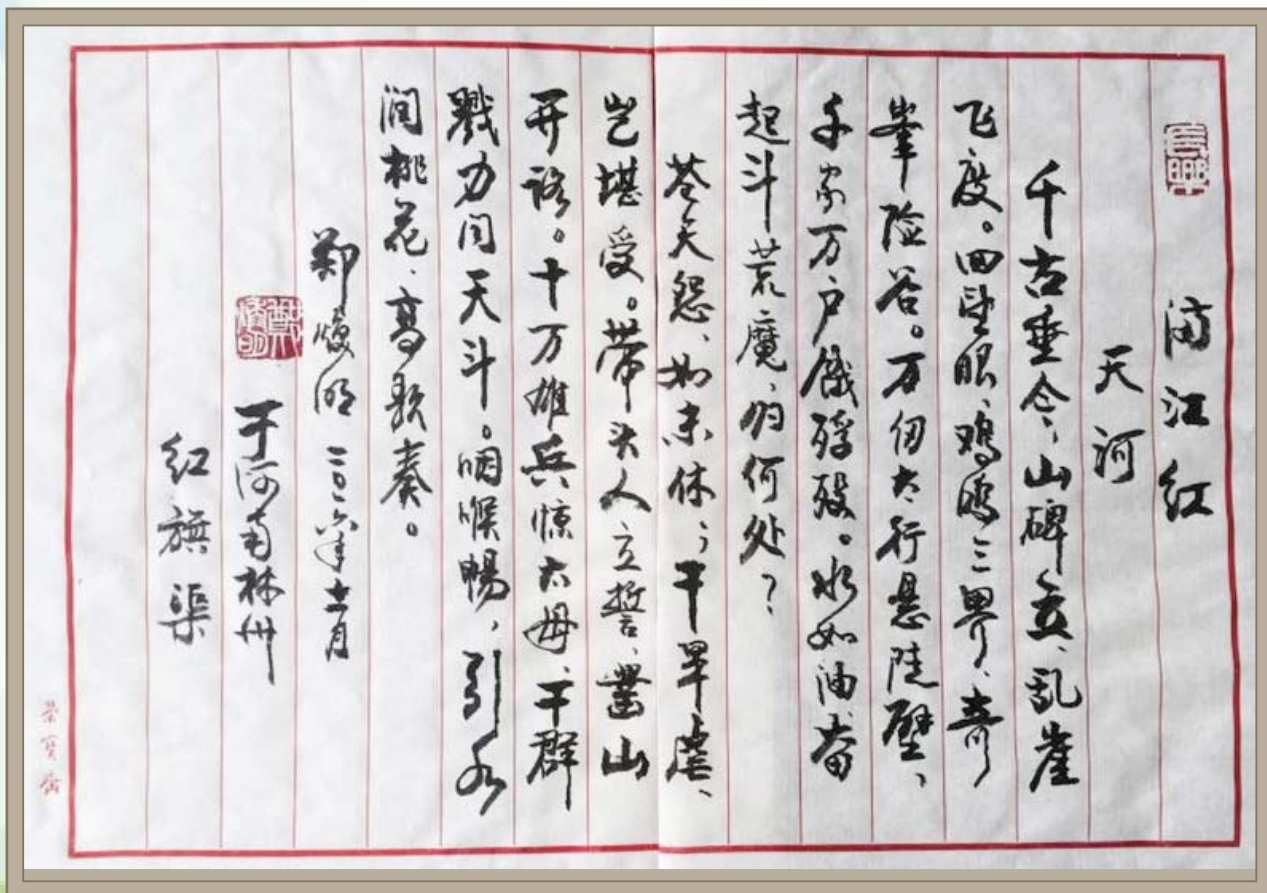 满江红
天河
千古垂今、山碑立、乱崖
飞度。回望眼、鸡鸣三界、奇
峯险谷。万仞太行悬陡壁、
千家万户饿殍殁。水如油奋
起斗荒魔、何处？
苍天怨、如未休；干旱虐、
岂堪受。带头人立誓、凿山
开路。十万雄兵惊母、干群
戮力同天斗。咽喉畅，引水
润桃花、高歌奏。
郑明
于河南林州
红旗渠
荣宝斋